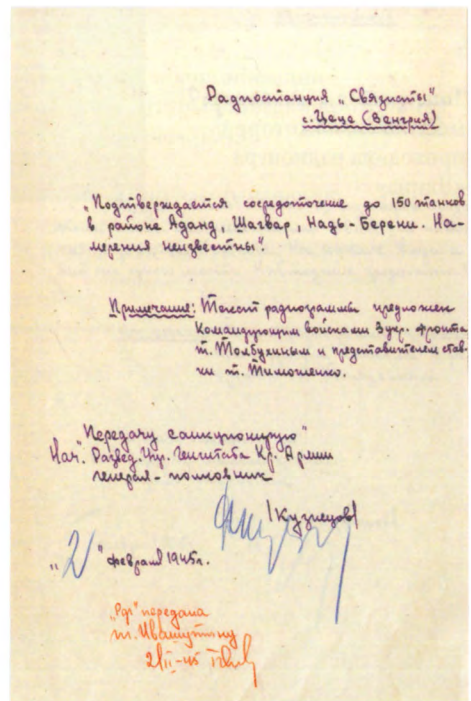 Радиостанция „Связисты"
с. Цеце (Венгрия)
„Подтверждается сосредоточение до 150 танков
в районе Аданд, Шагвар, Надь-Берени. На-
мерения неизвестны".
Примечание: Текст радиограммы предложен
Командующим войсками 3 укр. фронта
т. Толбухиным и представителем став-
ки т. Тимошенко.
„Передачу санкционирую"
Нач. Развед. Упр. Генштаба Кр. Армии
генерал-полковник
/Кузнецов/
„2" февраля 1945г.
„Рф" передана
т. Ивашутину
2/II-45